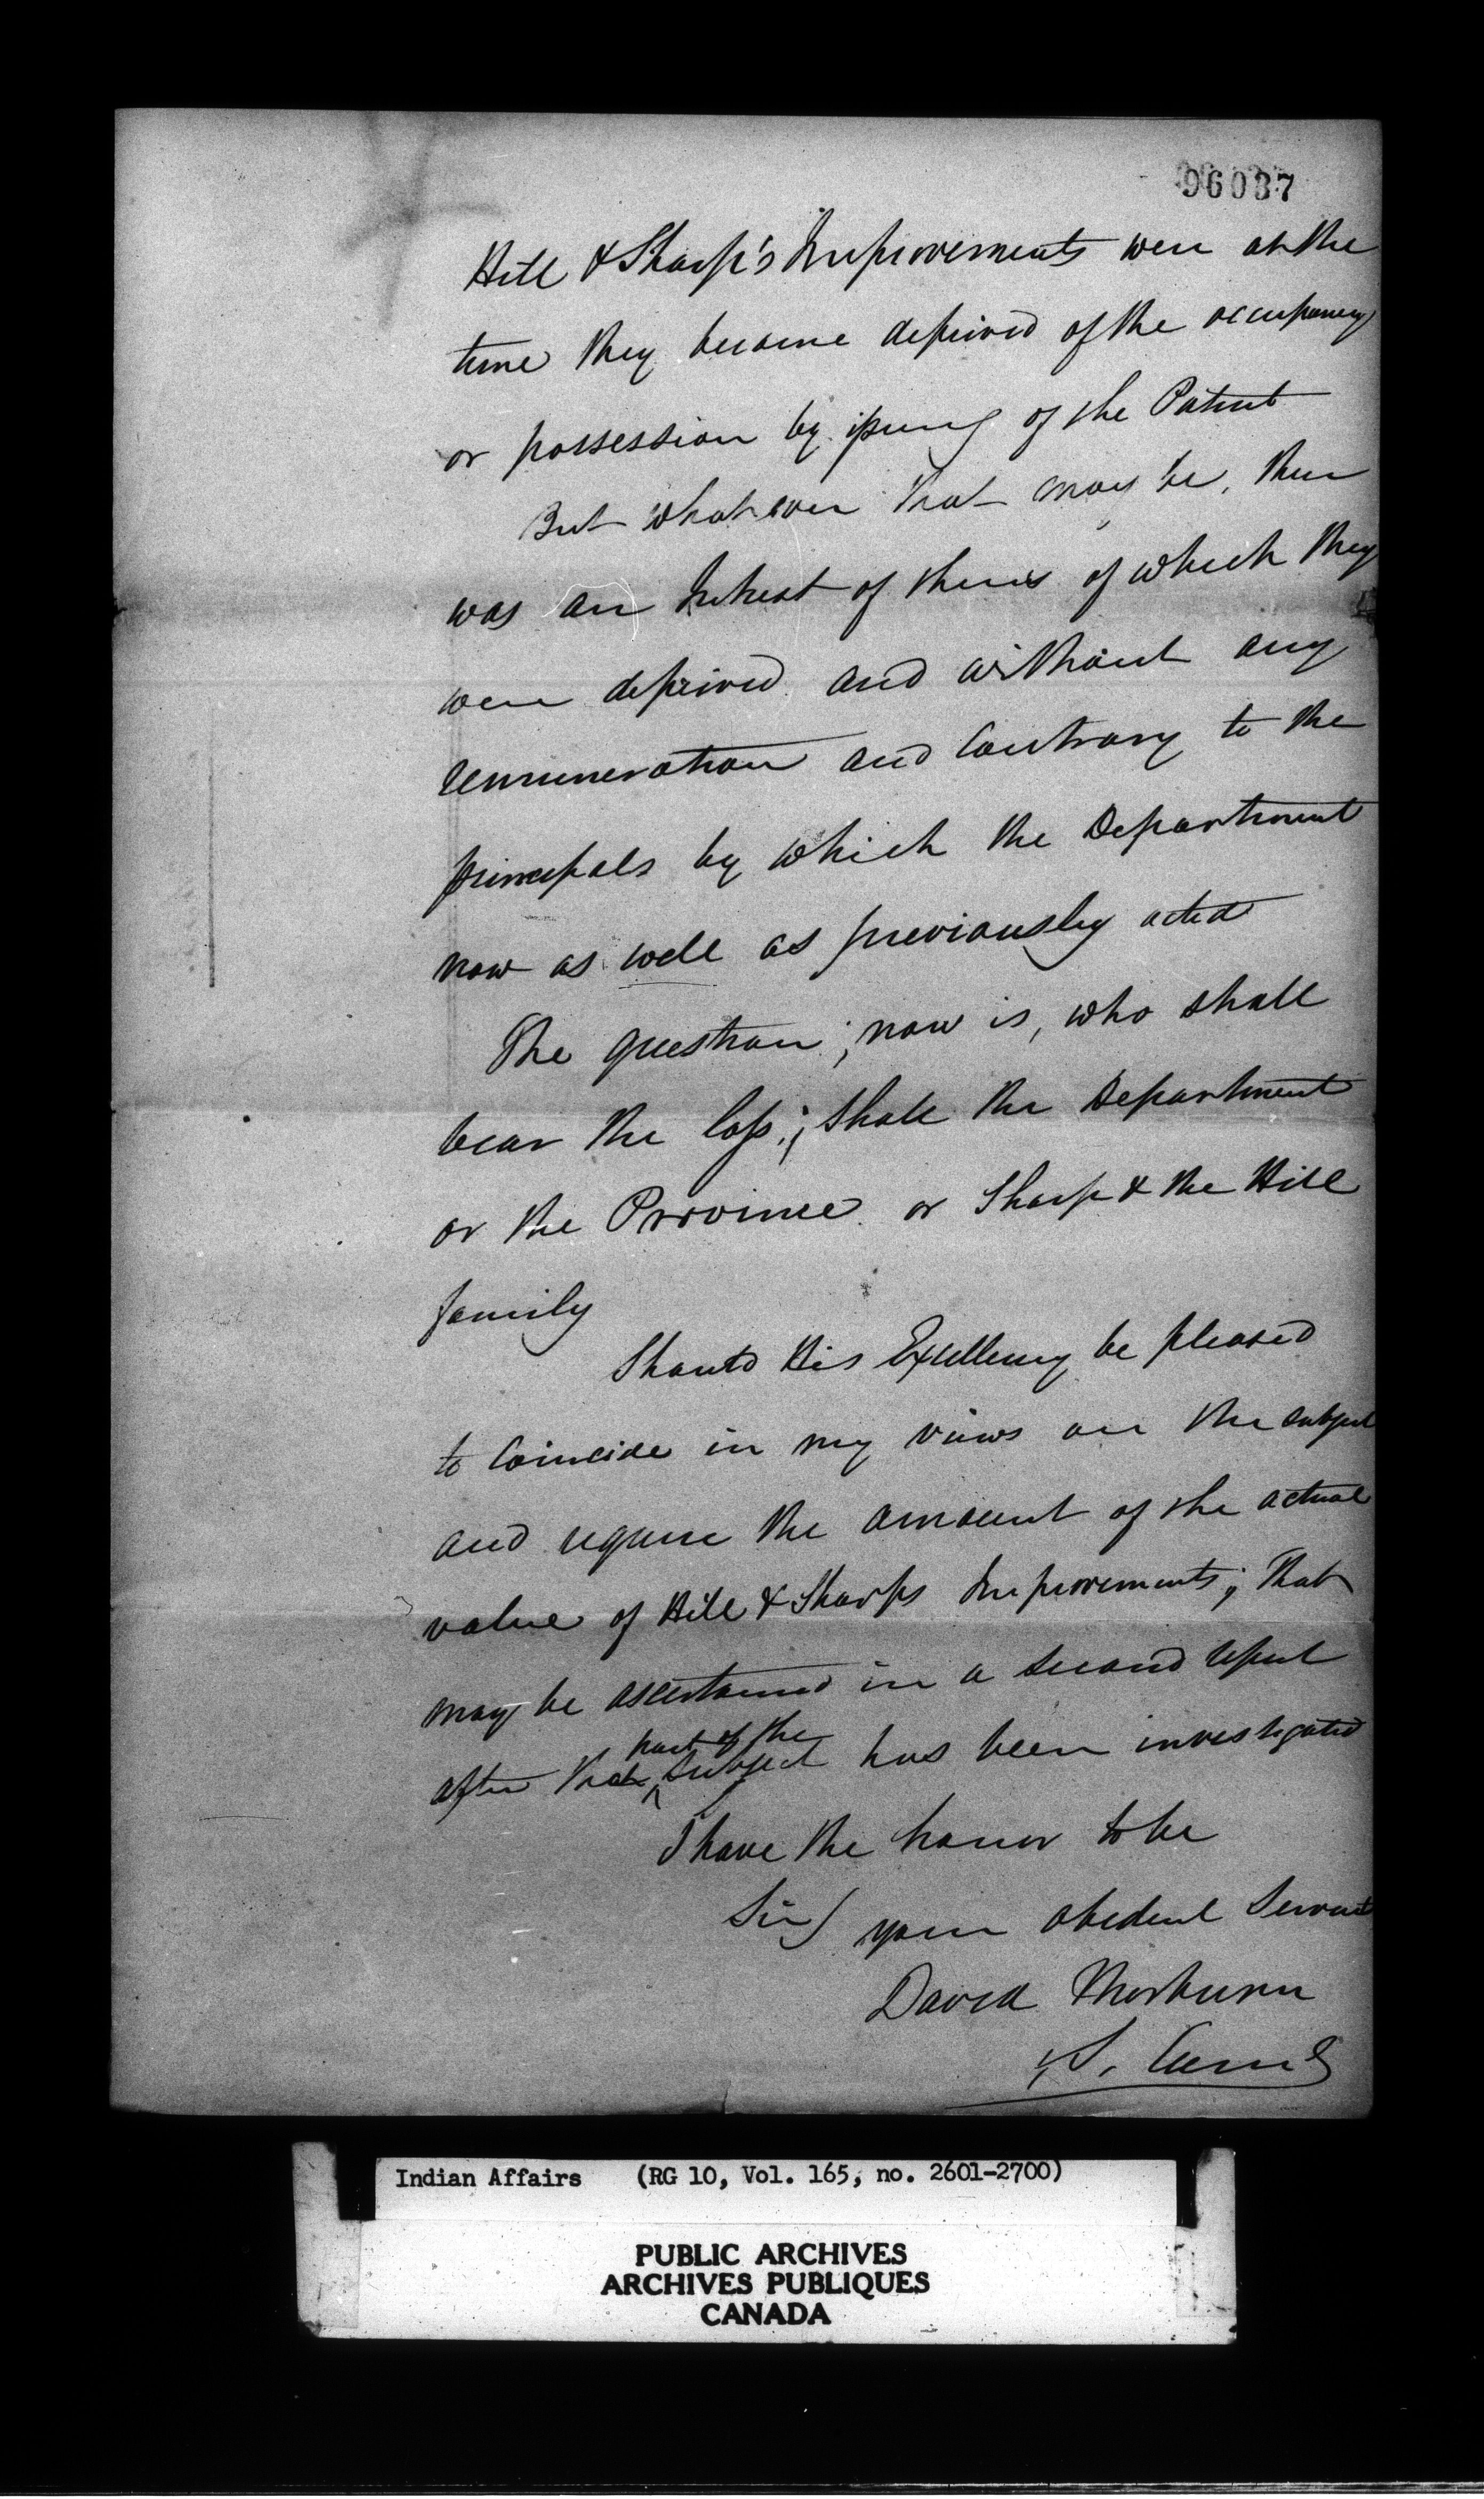 96037
Hill & Sharp's Improvements were at the
time they became deprived of the occupancy
or possession by issuing of the Patent
But whatever that may be, there
was an Interest of theirs of which they
were deprived and without any
remuneration and Contrary to the
principals by which the Department
now as well as previously acted
The question; now is, who shall
bear the loss; shall the Department
or the Province or Sharp & the Hill
family
Should His Excellency be pleased
to Coincide in my views on the subject
and require the amount of the actual
value of Hill & Sharps Improvements; That
may be ascertained in a second report
part of the
after that ^ subject has been investigated
I have the honor to be
Sir your obedient Servant
David Thorburn
S. Comr
Indian Affairs (RG 10, Vol. 165, no. 2601-2700)
PUBLIC ARCHIVES
ARCHIVES PUBLIQUES
CANADA